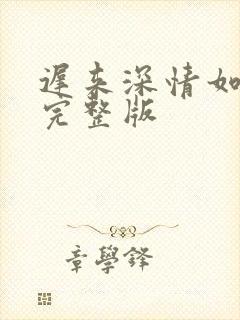 遲来深情如
完整版
章學鋒